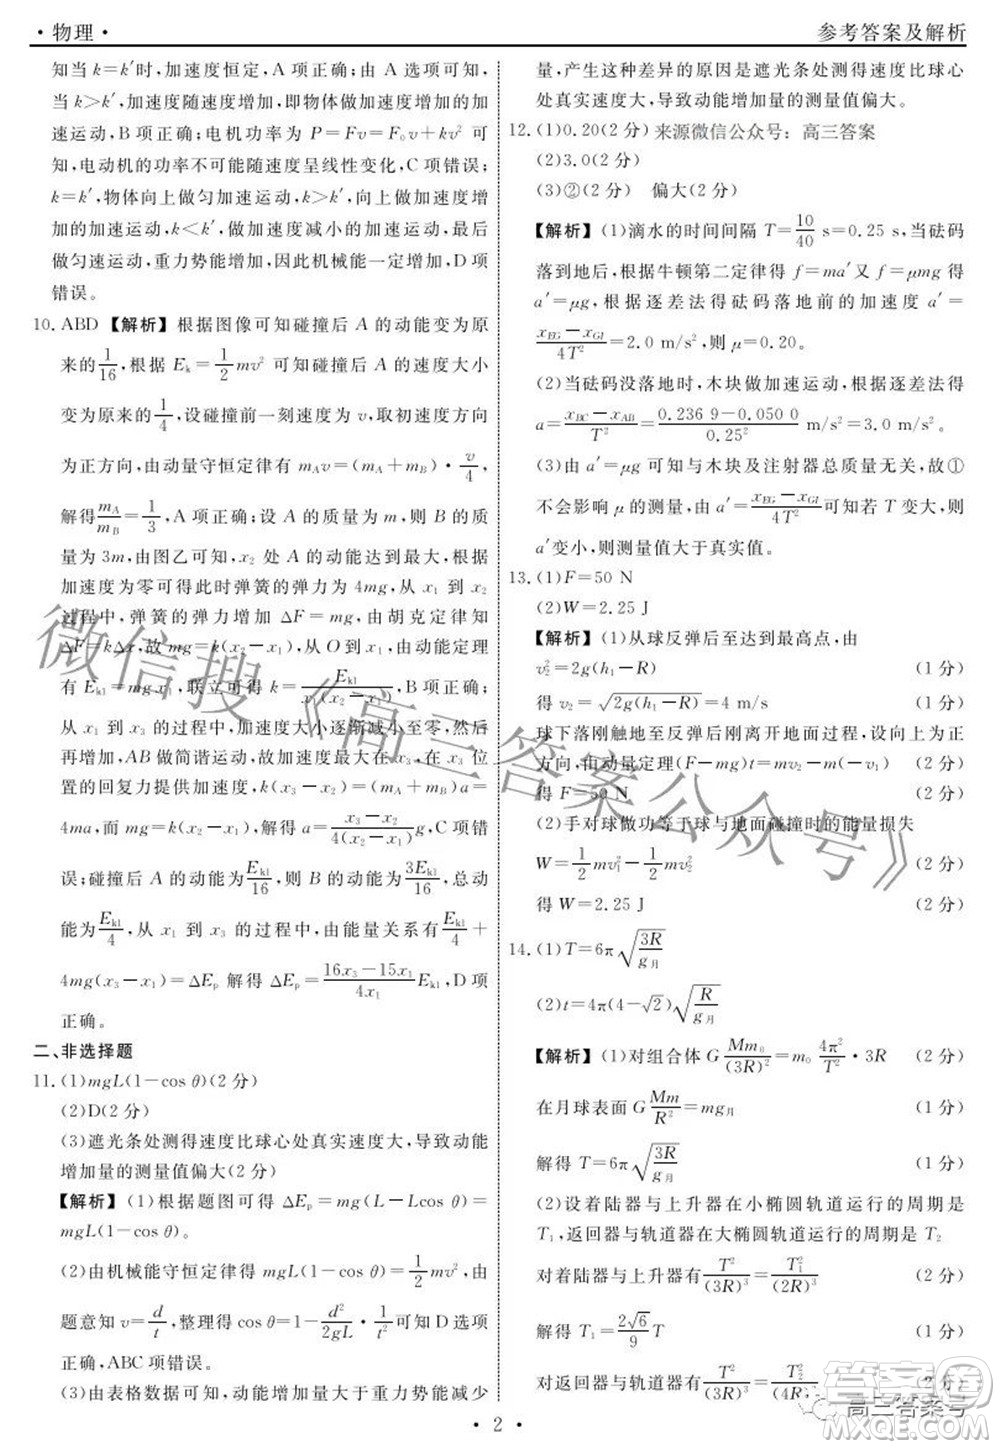 · 物理 ·
参考答案及解析
知当 k=k′时,加速度恒定,A 项正确;由 A 选项可知,
当 k>k′,加速度随速度增加,即物体做加速度增加的加
速运动,B 项正确;电机功率为 P=Fv=F₀v+kv² 可
知,电动机的功率不可能随速度呈线性变化,C 项错误;
k=k′,物体向上做匀加速运动,k>k′,做加速度增加的
加速运动,k<k′,做加速度减小的加速运动,但最后
做匀速运动,重力势能增加,因此机械能一定增加,D 项
错误。
10. ABD 【解析】根据图像可知碰撞后 A 的动能变为原
来的1/16,根据 Eₖ=1/2 mv² 可知碰撞后 A 的速度大小
变为原来的1/4,设碰撞前一刻速度为 v,取初速度方向
为正方向,由动量守恒定律有 m_A v=(m_A+m_B)·v/4,
解得 m_A/m_B=1/3,A 项正确;设 A 的质量为 m,则 B 的质
量为 3m,由图乙可知,x₂ 处 A 的动能达到最大,根据
加速度为零可得此时弹簧的弹力为 4mg,从 x₁ 到 x₂
过程中,弹簧的弹力增加 ΔF=mg,由胡克定律知
ΔF=kΔx,故 mg=k(x₂-x₁),从 O 到 x₁,由动能定理
有 Eₖ₁=mgx₁,联立可得 k=Eₖ₁/[x₁(x₂-x₁)],B 项正确;
从 x₁ 到 x₃ 的过程中,加速度大小逐渐减小至零,然后
再增大,AB 做简谐运动,根据对称性可知,在 x₃ 位
置的回复力提供加速度,根据 k(x₃-x₂)=(4m)a=
4ma,而 mg=k(x₂-x₁),解得 a=(x₃-x₂)/[4(x₂-x₁)] g,C 项错
误;碰撞后 A 的动能为 Eₖ₁/16,则 B 的动能为 3Eₖ₁/16,总动
能为 Eₖ₁/4,从 x₁ 到 x₃ 的过程中,由能量关系有 Eₖ₁/4+
4mg(x₃-x₁)=ΔEₚ 解得 ΔEₚ=(16x₃-15x₁)/(4x₁) Eₖ₁,D 项
正确。
二、非选择题
11. (1)mgL(1-cos θ)(2 分)
(2)D(2 分)
(3)遮光条处测得速度比球心处真实速度大,导致动能
增加量的测量值偏大(2 分)
【解析】(1)根据题图可得 ΔEₚ=mg(L-Lcos θ)=
mgL(1-cos θ)。
(2)由机械能守恒定律得 mgL(1-cos θ)=1/2 mv²,由
题意知 v=d/t,整理得 cos θ=1-d²/(2gL)·1/t²,可知 D 选项
正确,ABC 项错误。
(3)由表格数据可知,动能增加量大于重力势能减少
量,产生这种差异的原因是遮光条处测得速度比球心
处真实速度大,导致动能增加量的测量值偏大。
12. (1)0.20(2 分) 来源微信公众号:高三答案
(2)3.0(2 分)
(3)②(2 分) 偏大(2 分)
【解析】(1)滴水的时间间隔 T=10/40 s=0.25 s,当砝码
落到地后,根据牛顿第二定律得 f=ma′,f=μmg 得
a′=μg,根据逐差法得砝码落地前的加速度 a′=
(x_EG-x_GI)/4T²=2.0 m/s²,则 μ=0.20。
(2)当砝码未落地时,木块做加速运动,由逐差法得
a=(x_BC-x_AB)/T²=(0.236 9-0.050 0)/0.25² m/s²=3.0 m/s²。
(3)由 a′=μg 可知与木块及注射器总质量无关,故①
不会影响 μ 的测量,由 a′=(x_EG-x_GI)/4T²可知若 T 变大,则
a′变小,则测量值大于真实值。
13. (1)F=50 N
(2)W=2.25 J
【解析】(1)从球反弹后至达到最高点,由
v₂²=2g(h₁-R) (1 分)
得 v₂=√(2g(h₁-R))=4 m/s (1 分)
球下落刚触地至反弹后刚离开地面过程,设向上为正
方向,由动量定理(F-mg)t=mv₂-m(-v₁) (2 分)
得 F=50 N (2 分)
(2)手对球做功等于球与地面碰撞时的能量损失
W=1/2 mv₁²-1/2 mv₂² (2 分)
得 W=2.25 J (2 分)
14. (1)T=6π√(3R/g月)
(2)t=4π(4-√2)√(R/g月)
【解析】(1)对组合体 G Mm₀/(3R)²=m₀ 4π²/T²·3R (2 分)
在月球表面 G Mm/R²=mg月 (1 分)
解得 T=6π√(3R/g月) (1 分)
(2)设着陆器与上升器在小椭圆轨道运行的周期是
T₁,返回器与轨道器在大椭圆轨道运行的周期是 T₂
对着陆器与上升器有 T²/(3R)³=T₁²/(2R)³ (2 分)
解得 T₁=2√6/9 T (1 分)
对返回器与轨道器有 T²/(3R)³=T₂²/(4R)³
· 2 ·
微信搜《高三答案公众号》
高三答案号
答案圈
MXQE.COM